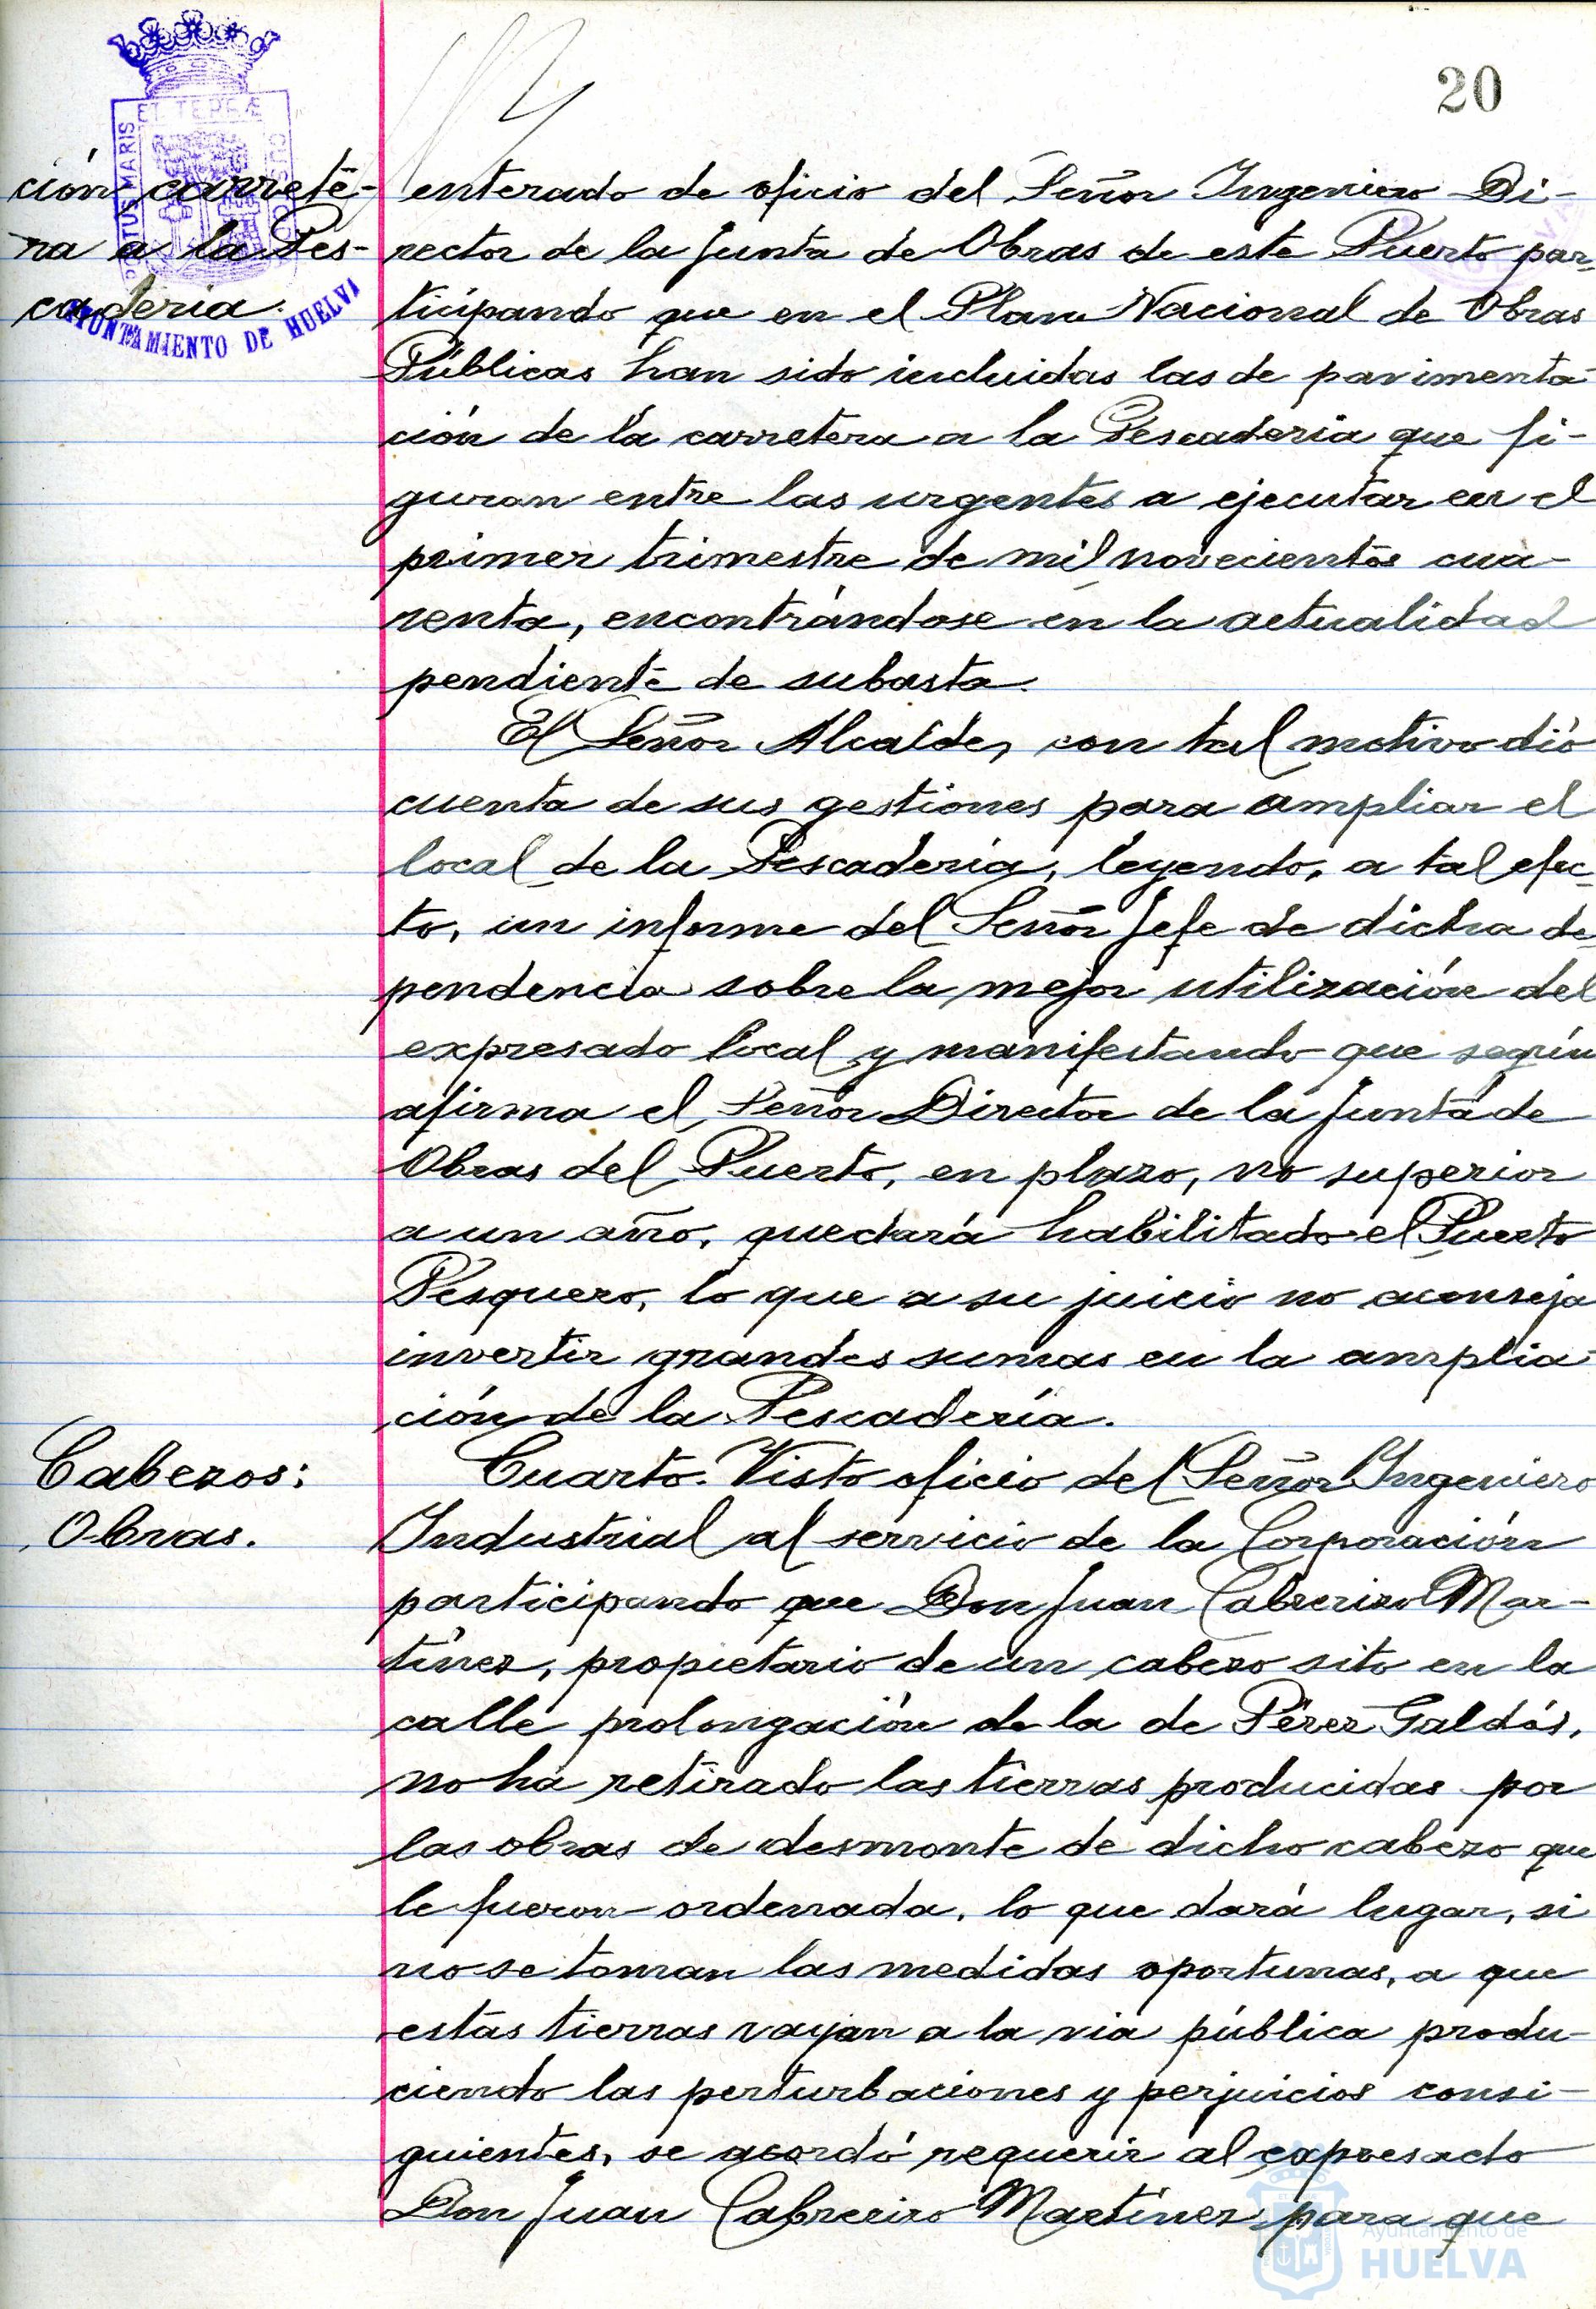 20
ET TERRÆ
PORTUS MARIS
CUSTODIA
AYUNTAMIENTO DE HUELVA
ción carrete-
ra a la Pes-
caderia.
enterado de oficio del Señor Ingeniero Di-
rector de la Junta de Obras de este Puerto par-
ticipando que en el Plan Nacional de Obras
Públicas han sido incluidas las de pavimenta-
ción de la carretera a la Pescaderia que fi-
guran entre las urgentes a ejecutar en el
primer trimestre de mil novecientos cua-
renta, encontrándose en la actualidad
pendiente de subasta.
El Señor Alcalde, con tal motivo dió
cuenta de sus gestiones para ampliar el
local de la Pescaderia, leyendo, a tal efec-
to, un informe del Señor Jefe de dicha de-
pendencia sobre la mejor utilización del
expresado local y manifestando que según
afirma el Señor Director de la Junta de
Obras del Puerto, en plazo, no superior
a un año, quedará habilitado el Puerto
Pesquero, lo que a su juicio no aconseja
invertir grandes sumas en la amplia-
ción de la Pescadería.
Cabezos:
Obras.
Cuarto. Visto oficio del Señor Ingeniero
Industrial al servicio de la Corporación
participando que Don Juan Cabrerizo Mar-
tínez, propietario de un cabezo sito en la
calle prolongación de la de Pérez Galdós,
no ha retirado las tierras producidas por
las obras de desmonte de dicho cabezo que
le fueron ordenada, lo que dará lugar, si
no se toman las medidas oportunas, a que
estas tierras vayan a la via pública produ-
ciendo las perturbaciones y perjuicios consi-
guientes, se acordó requerir al expresado
Don Juan Cabrerizo Martínez para que
Ayuntamiento de
HUELVA